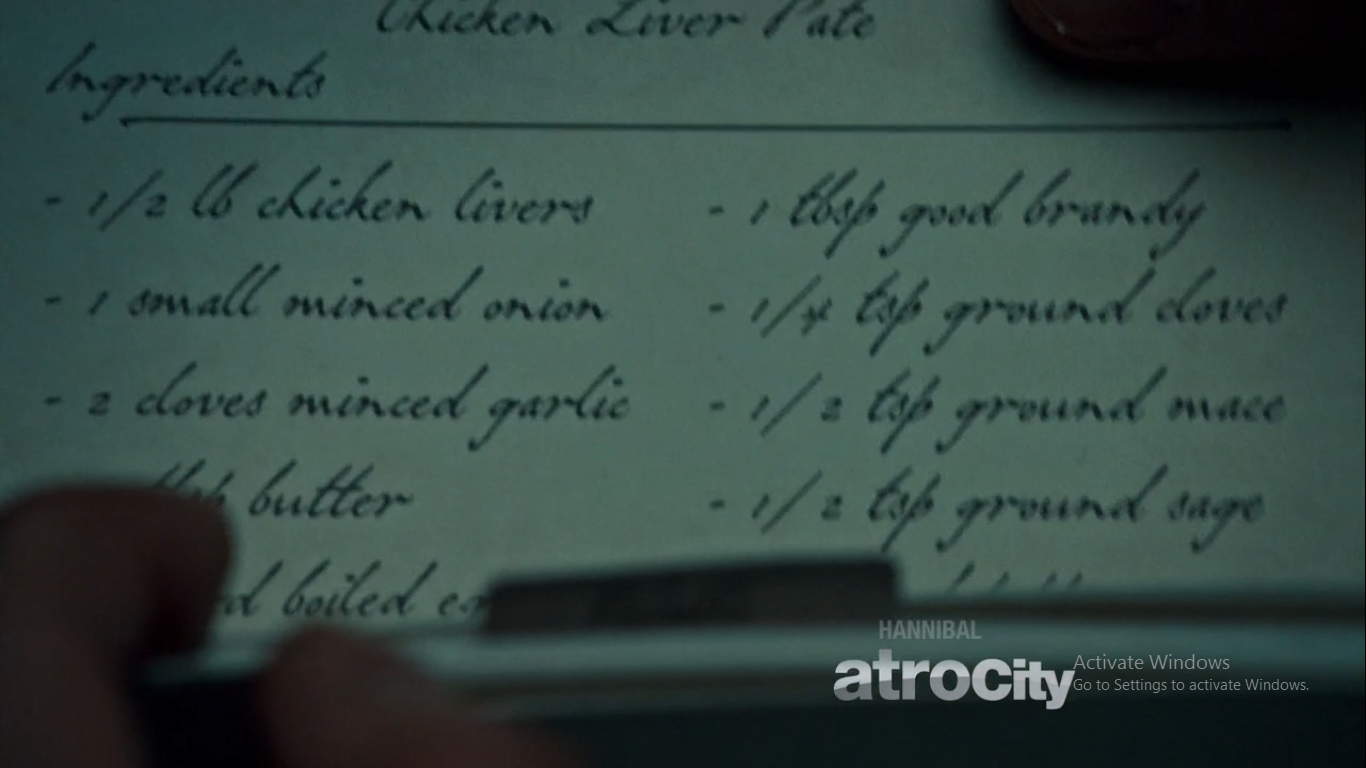 Chicken Liver Pate
Ingredients
- 1/2 lb chicken livers
- 1 small minced onion
- 2 cloves minced garlic
butter
boiled
- 1 tbsp good brandy
- 1/4 tsp ground cloves
- 1/2 tsp ground mace
- 1/2 tsp ground sage
HANNIBAL
atroCity
Activate Windows
Go to Settings to activate Windows.